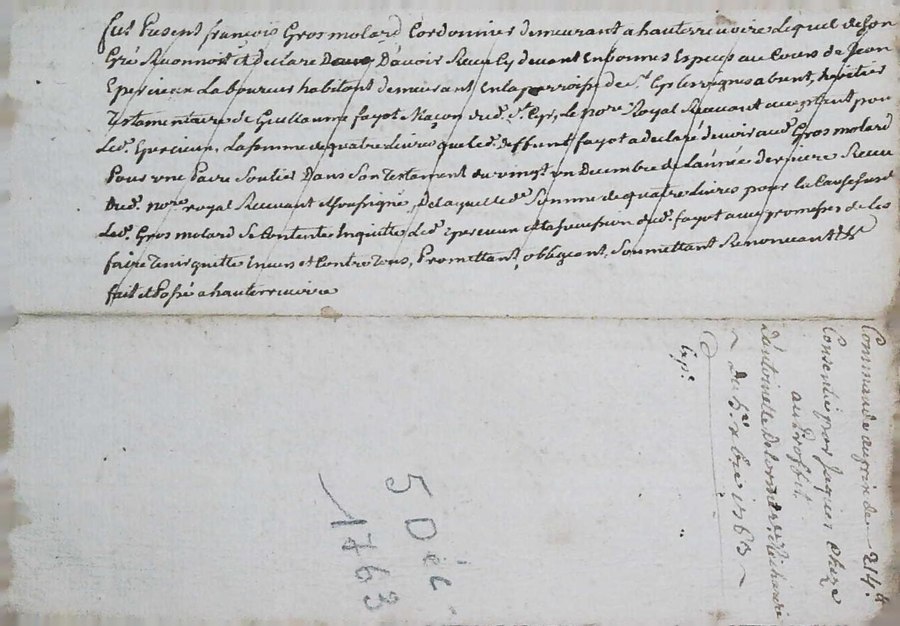 fut Present françois Grosmolard Cordonnier demeurant a hauterrivoire Lequel de son
Gré Reconnoit et declare D'avoir Receu cy devant en bonnes Especes au Cours de Jean
Epercieux Laboureur habitant demeurant en la parroisse de St.
Testamentaire de Guillaume fayot Maçon dud. St. Cyr, Le nore. Royal Recevant acceptant pour
Led. Epercieux, La somme de quatre Livres que Led. deffunt fayot a declaré devoir aud. Grosmolard
Pour une Paire Soulier Dans son Testament du vingt un Decembre de L'année derniere Receu
Dud. nore. royal Recevant et soussigné, De laquelle d. Somme de quatre Livres pour la Cause susd.
Led. Grosmolard Se Contente En quitte Led. Epercieux et la succession dud. fayot avec promesse de les
faire Tenir quitte Envers et Contre Tous, Promettant, obligeant, Soumettant Renonceant &
fait et Passé a hauterrivoire
Commande du prix de 214 #
Consentie par Jaques Cheze
au Proffit
D'antoinette
Du 5e. xbre 1763
Exp.
5 Déc
1763